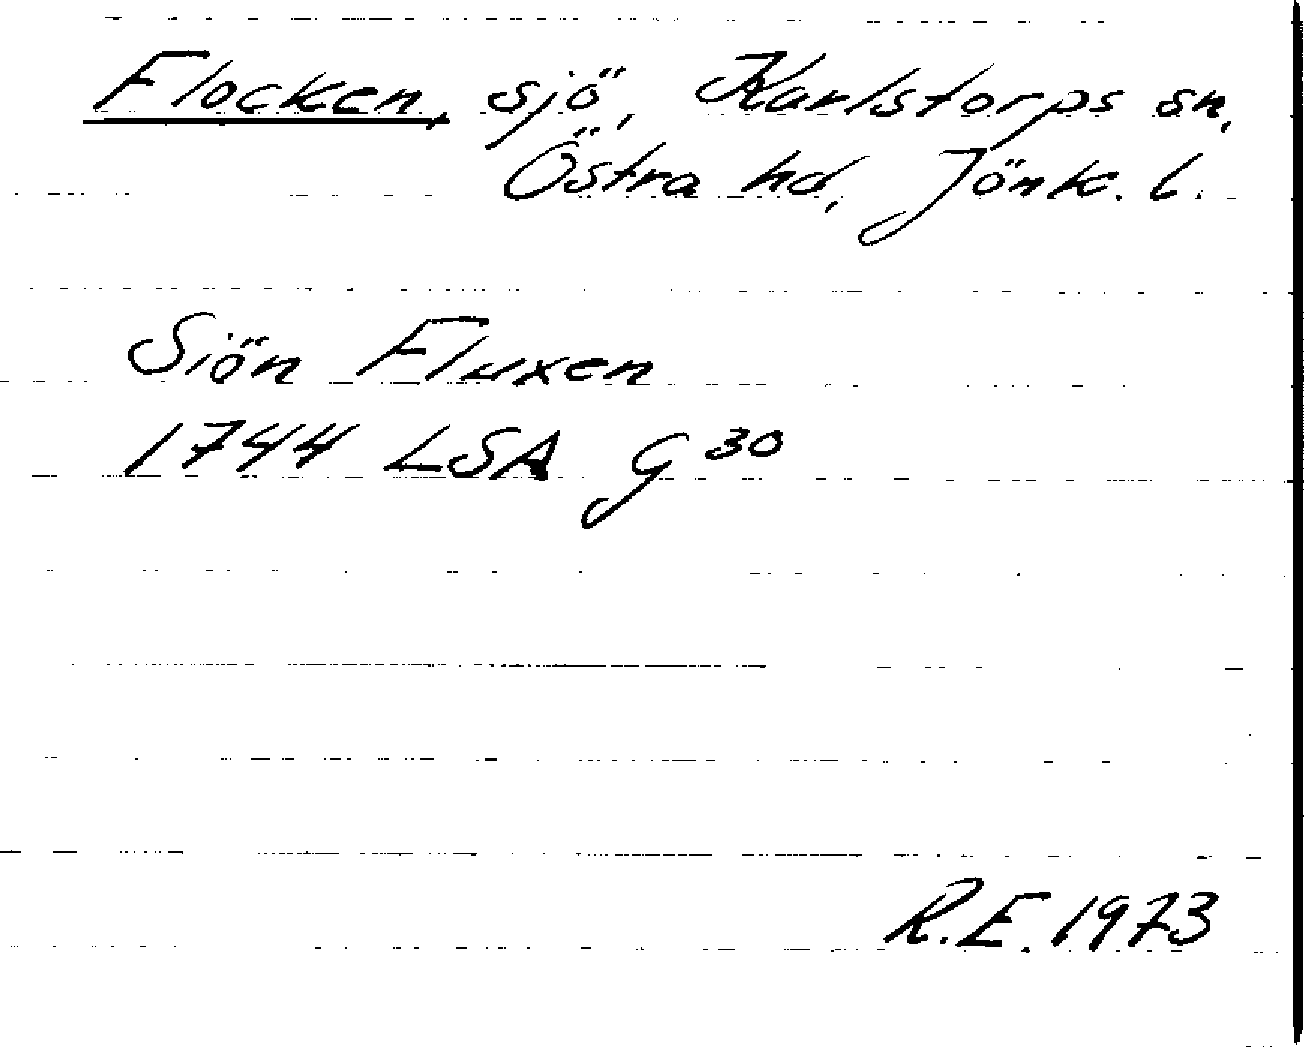 Flocken, sjö, Karlstorps sn,
Östra hd, Jönk. l.
Siön Fluxen
1744 LSA G 30
R.E. 1973